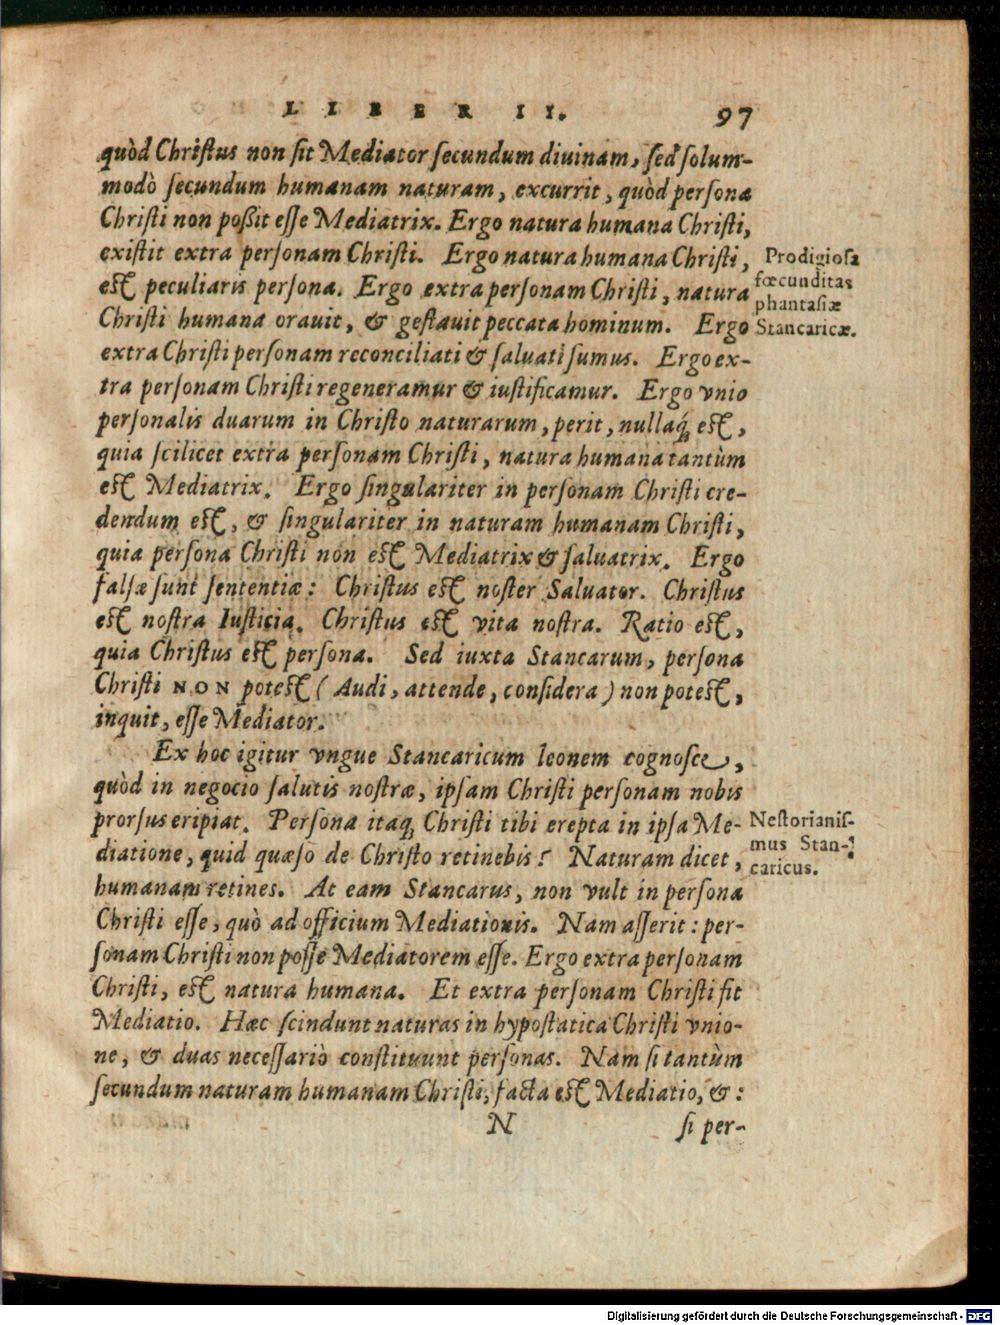 LIBER II. 97
quòd Christus non sit Mediator secundum diuinam, sed solum-
modò secundum humanam naturam, excurrit, quòd persona
Christi non poßit esse Mediatrix. Ergo natura humana Christi,
existit extra personam Christi. Ergo natura humana Christi,
est peculiaris persona. Ergo extra personam Christi, natura
Christi humana orauit, & gestauit peccata hominum. Ergo
extra Christi personam reconciliati & saluati sumus. Ergo ex-
tra personam Christi regeneramur & iustificamur. Ergo vnio
personalis duarum in Christo naturarum, perit, nullaq́; est,
quia scilicet extra personam Christi, natura humana tantùm
est Mediatrix. Ergo singulariter in personam Christi cre-
dendum est, & singulariter in naturam humanam Christi,
quia persona Christi non est Mediatrix & saluatrix. Ergo
falsæ sunt sententiæ: Christus est noster Saluator. Christus
est nostra Iusticia. Christus est vita nostra. Ratio est,
quia Christus est persona. Sed iuxta Stancarum, persona
Christi NON potest (Audi, attende, considera) non potest,
inquit, esse Mediator.
Ex hoc igitur vngue Stancaricum leonem cognosce,
quòd in negocio salutis nostræ, ipsam Christi personam nobis
prorsus eripiat. Persona itaq; Christi tibi erepta in ipsa Me-
diatione, quid quæso de Christo retinebis? Naturam dicet,
humanam retines. At eam Stancarus, non vult in persona
Christi esse, quò ad officium Mediationis. Nam asserit: per-
sonam Christi non posse Mediatorem esse. Ergo extra personam
Christi, est natura humana. Et extra personam Christi fit
Mediatio. Hæc scindunt naturas in hypostatica Christi vnio-
ne, & duas necessariò constituunt personas. Nam si tantùm
secundum naturam humanam Christi, facta est Mediatio, & :
N si per-
Prodigiosa
fœcunditas
phantasiæ
Stancaricæ.
Nestorianis-
mus Stan-
caricus.
Digitalisierung gefördert durch die Deutsche Forschungsgemeinschaft - DFG